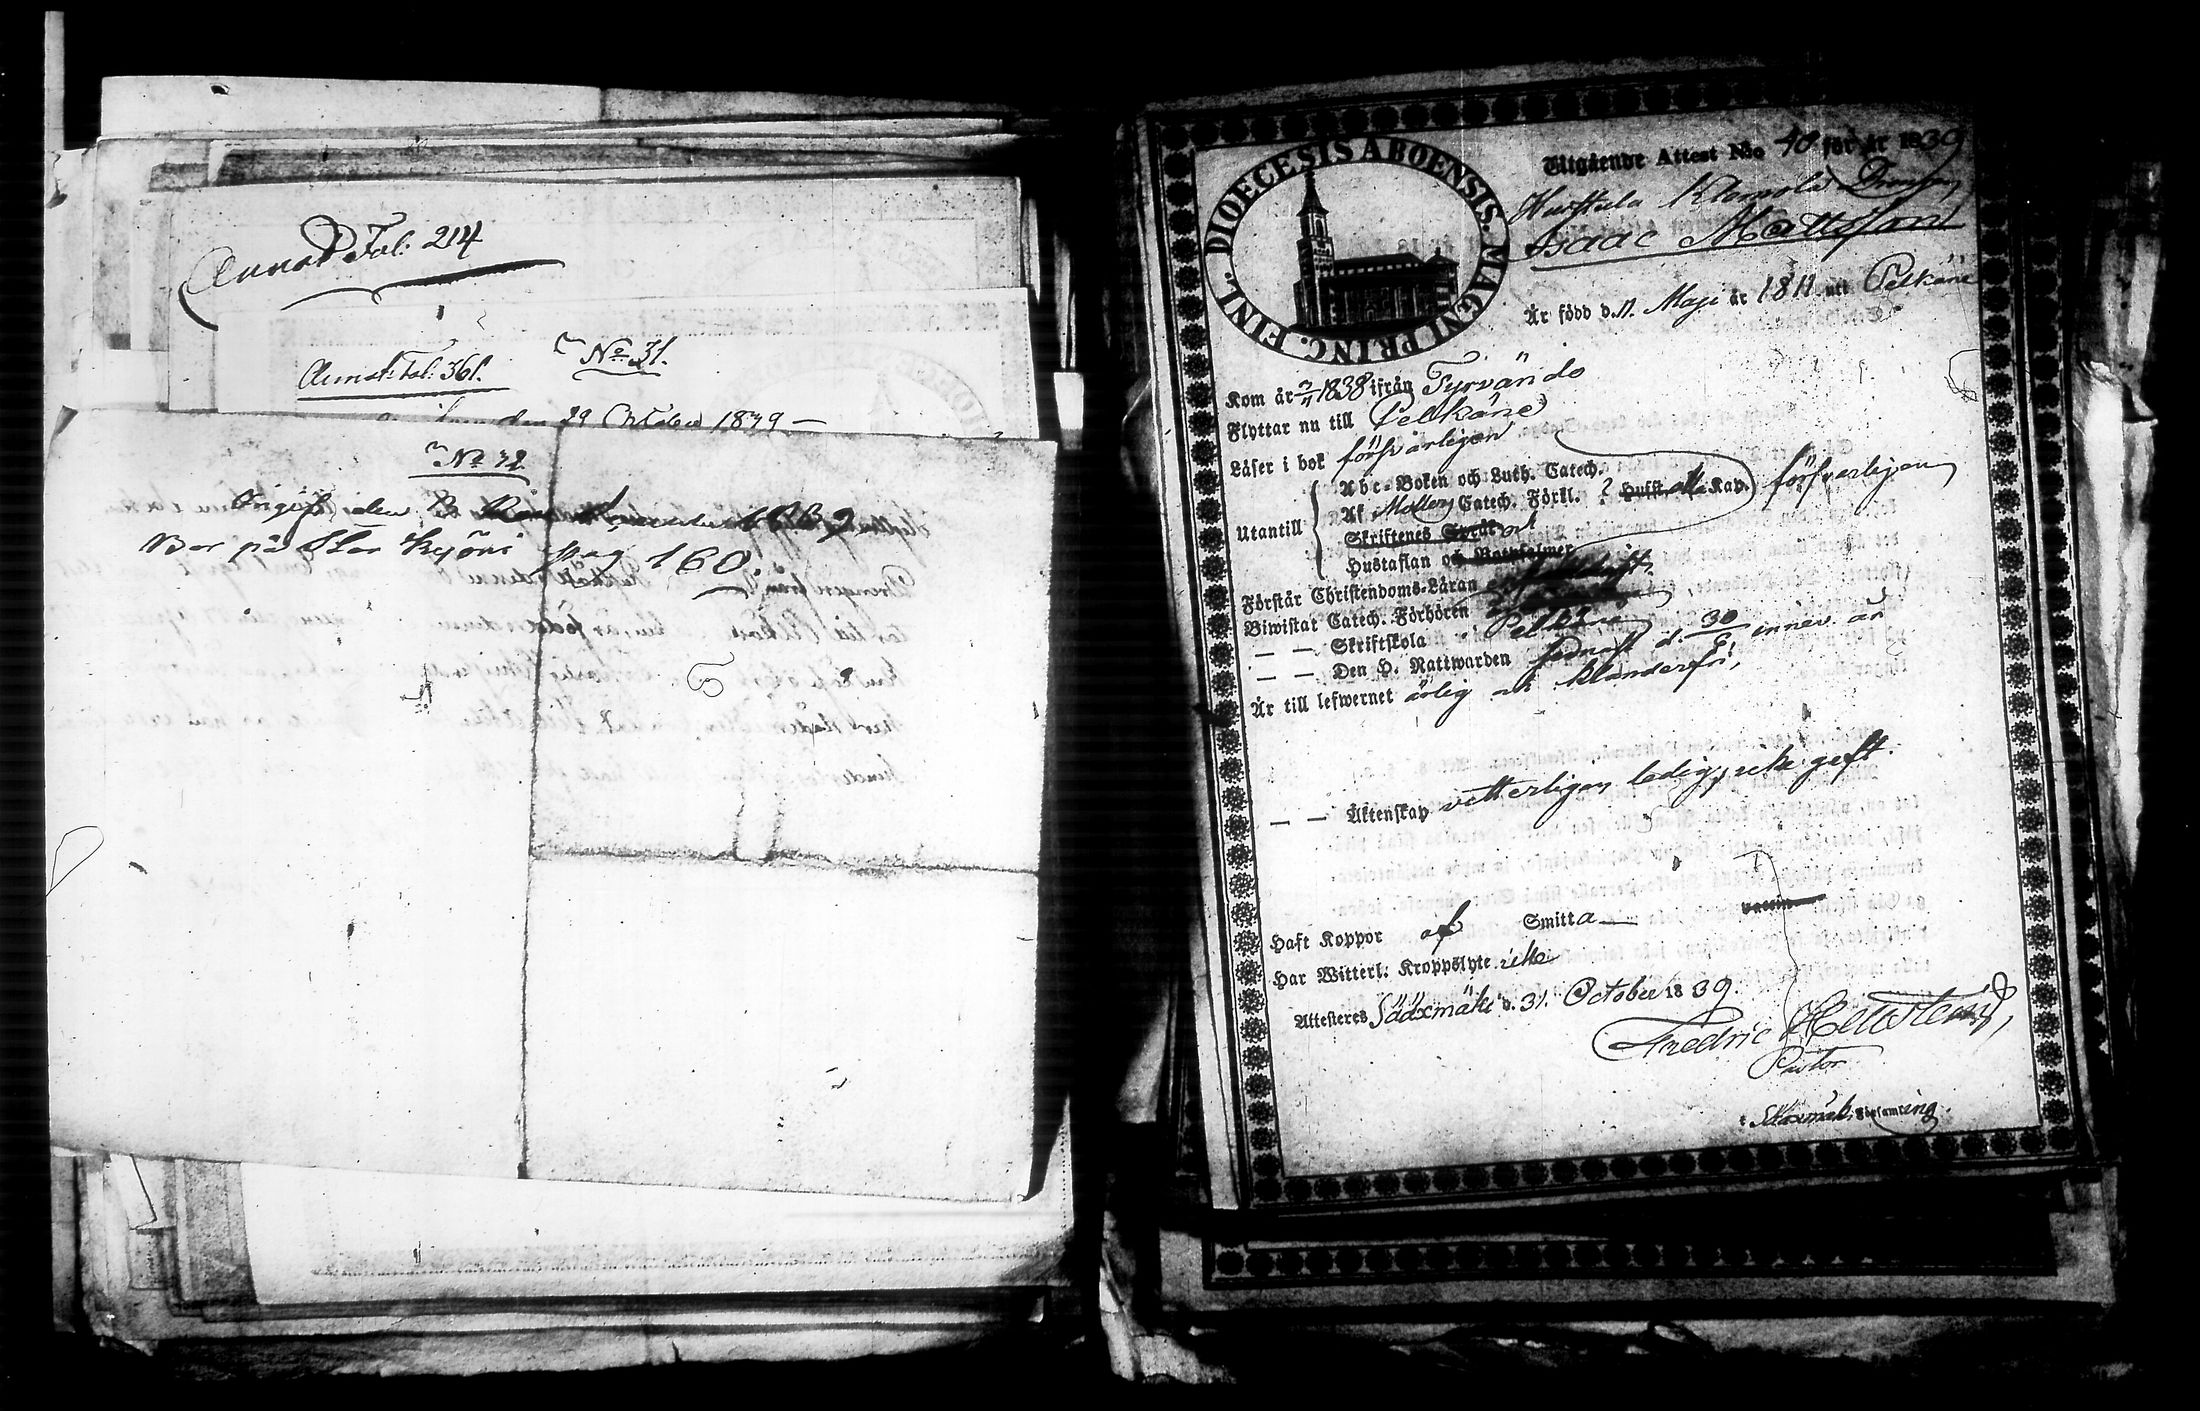 Fol: 214
Fol: 361.
No 31.
den 29 October 1839
No 32
den
Bor på Stor Kyörö pag 160.
DIOECESIS ABOENSIS. MAGNI PRINC. FINL.
Utgående Attest No 40 för år 1839
Drengen
Isaac Mattsson
Är född d. 11. Maji år 1811 uti Pelkäne
Kom år 1838 ifrån Tyrvändö
Flyttar nu till Pelkäne
Läser i bok försvarligen
Abc-Boken och Luth. Catech.
Utantill Af Catech. Förkl. ? Hufst. alla Kap. försvarligen
Skriftenes Språk
Hustaflan och Botpsalmer
Förstår Christendoms-Läran
Biwistat Catech. Förhören
— — Skriftskola i Pelkäne
— — Den H. Nattwarden sednast d. 30/6 innev. år
Är till lefwernet ärlig och klanderfri,
— — Äktenskap vetterligen ledig, icke gift.
Haft Koppor af Smitta — vaccin
Har Witterl: Kroppslyte icke
Attesteres Sääxmäki d. 31. October 1839.
Fredric
Pastor
i Sääxmäki Församling.